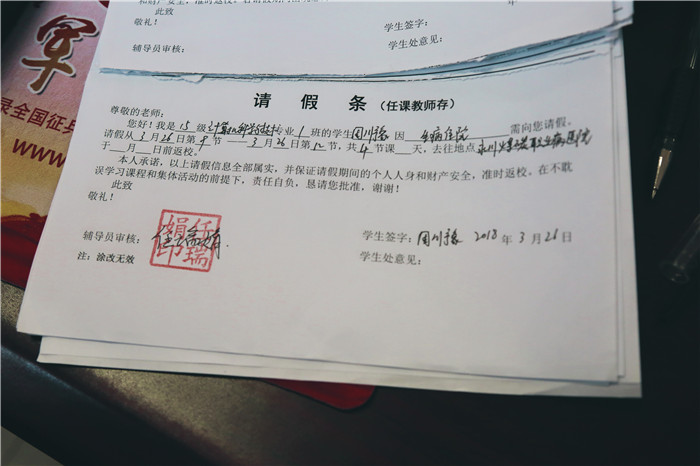 此致
敬礼!
学生签字:
年
辅导员审核:
学生处意见:
军
录全国征兵
www.
请 假 条 (任课教师存)
尊敬的老师:
您好!我是 15 级 计算机科学与技术 专业 1 班的学生 周川豫 因 生病住院 需向您请假。
请假从 3 月 26 日第 9 节 —— 3 月 26 日第 12 节,共 4 节课 天,去往地点 永川
于 月 日前返校。
本人承诺,以上请假信息全部属实,并保证请假期间的个人人身和财产安全,准时返校。在不耽
误学习课程和集体活动的前提下,责任自负,恳请您批准,谢谢!
此致
敬礼!
辅导员审核: 任瑞娟
任瑞娟印
学生签字: 周川豫 2018 年 3 月 26 日
注:涂改无效
学生处意见: